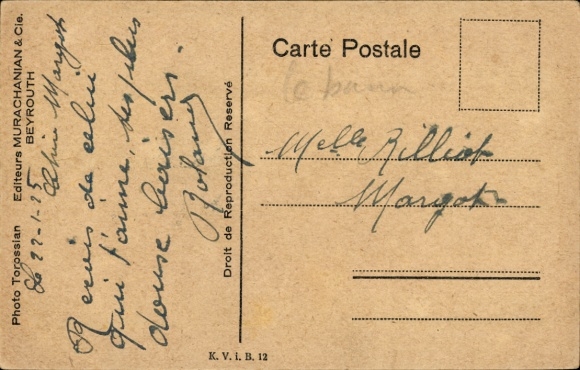 Photo Torossian Editeurs MURACHANIAN & Cie.
BEYROUTH
Le 22-1-25
Margot
Reçois de celui
qui t'aime, ses plus
douse baisers.
Roland
Droit de Reproduction Reservé
K. V. i. B. 12
Carte Postale
Melle Rilliot
Margot